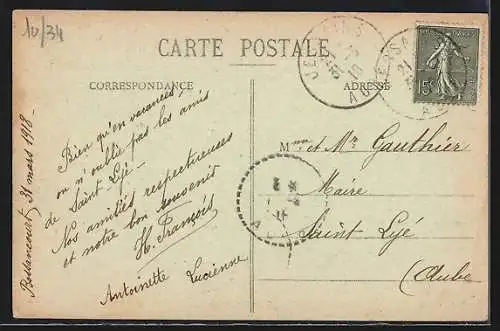 10/34
CARTE POSTALE
CORRESPONDANCE
ADRESSE
15c
Bien qu'en vacances,
on n'oublie pas les amis
de Saint-Lyé.
Nos amitiés respectueuses
et notre bon souvenir
H. François
Antoinette Lucienne
31 mars 1918.
Mme et Mr Gauthier
Maire
Saint Lyé
(Aube)